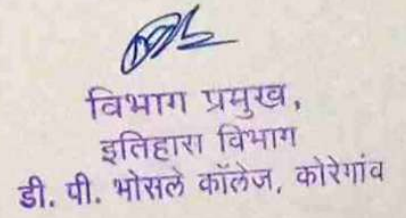 विभाग प्रमुख,
इतिहास विभाग
डी. पी. भोसले कॉलेज, कोरेगांव